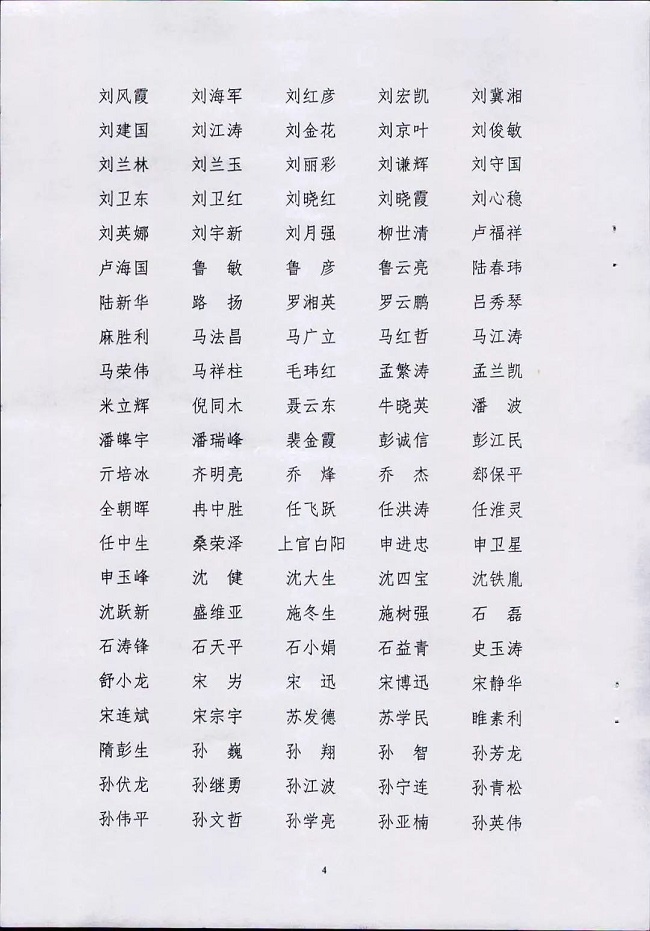 刘风霞 刘海军 刘红彦 刘宏凯 刘冀湘
刘建国 刘江涛 刘金花 刘京叶 刘俊敏
刘兰林 刘兰玉 刘丽彩 刘谦辉 刘守国
刘卫东 刘卫红 刘晓红 刘晓霞 刘心稳
刘英娜 刘宇新 刘月强 柳世清 卢福祥
卢海国 鲁 敏 鲁 彦 鲁云亮 陆春玮
陆新华 路 扬 罗湘英 罗云鹏 吕秀琴
麻胜利 马法昌 马广立 马红哲 马江涛
马荣伟 马祥柱 毛玮红 孟繁涛 孟兰凯
米立辉 倪同木 聂云东 牛晓英 潘 波
潘皞宇 潘瑞峰 裴金霞 彭诚信 彭江民
亓培冰 齐明亮 乔 烽 乔 杰 郄保平
全朝晖 冉中胜 任飞跃 任洪涛 任淮灵
任中生 桑荣泽 上官白阳 申进忠 申卫星
申玉峰 沈 健 沈大生 沈四宝 沈铁胤
沈跃新 盛维亚 施冬生 施树强 石 磊
石涛锋 石天平 石小娟 石益青 史玉涛
舒小龙 宋 岃 宋 迅 宋博迅 宋静华
宋连斌 宋宗宇 苏发德 苏学民 睢素利
隋彭生 孙 巍 孙 翔 孙 智 孙芳龙
孙伏龙 孙继勇 孙江波 孙宁连 孙青松
孙伟平 孙文哲 孙学亮 孙亚楠 孙英伟
4